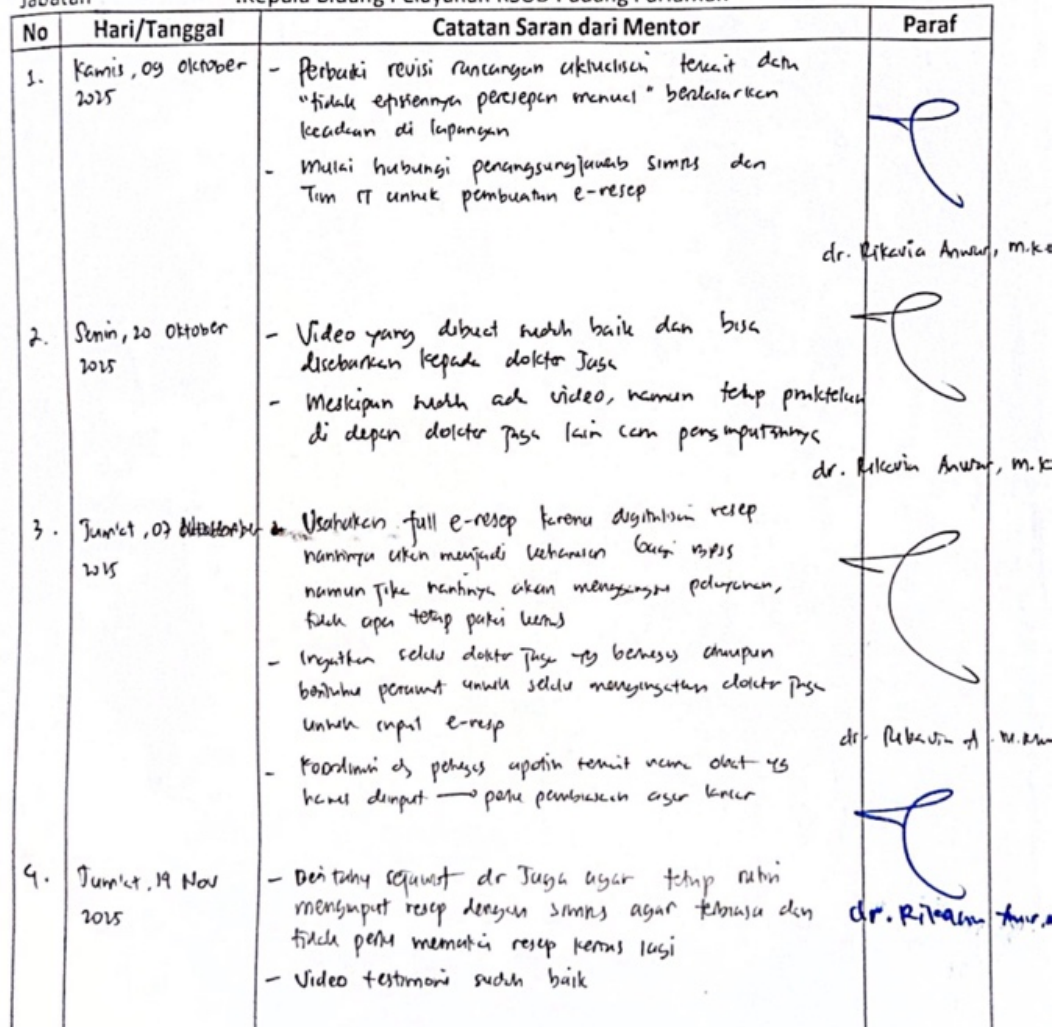 Jabatan :Kepala Bidang Pelayanan RSUD Padang Pariaman
No Hari/Tanggal Catatan Saran dari Mentor Paraf
1. Kamis, 09 Oktober 2025
- Perbaiki revisi rancangan aktualisasi terkait data
"tidak efisiennya peresepan manual" berdasarkan
keadaan di lapangan
- Mulai hubungi penanggungjawab simrs dan
Tim IT untuk pembuatan e-resep
dr. Rikavia Anwar, M.Ke
2. Senin, 20 Oktober 2025
- Video yang dibuat sudah baik dan bisa
disebarkan kepada dokter Jaga
- Meskipun sudah ada video, namun tetap praktekan
di depan dokter jaga lain cara penginputannya
dr. Rikavia Anwar, M.K
3. Jum'at, 07
2025
Usahakan full e-resep karena digitalisasi resep
nantinya akan menjadi keharusan bagi BPJS
namun jika nantinya akan mengganggu pelayanan,
tidak apa tetap pakai kertas
- Ingatkan selalu dokter jaga yg bertugas ataupun
perawat untuk selalu mengingatkan dokter jaga
untuk input e-resep
- Koordinasi dg petugas apotik terkait nama obat yg
harus diinput → perlu pembiasaan agar lancar
dr. Rikavia A. M.
4. Jum'at, 14 Nov
2025
- sejawat dr Jaga agar tetap rutin
menginput resep dengan simrs agar terbiasa dan
tidak perlu memakai resep kertas lagi
- Video testimoni sudah baik
dr. Rikavia